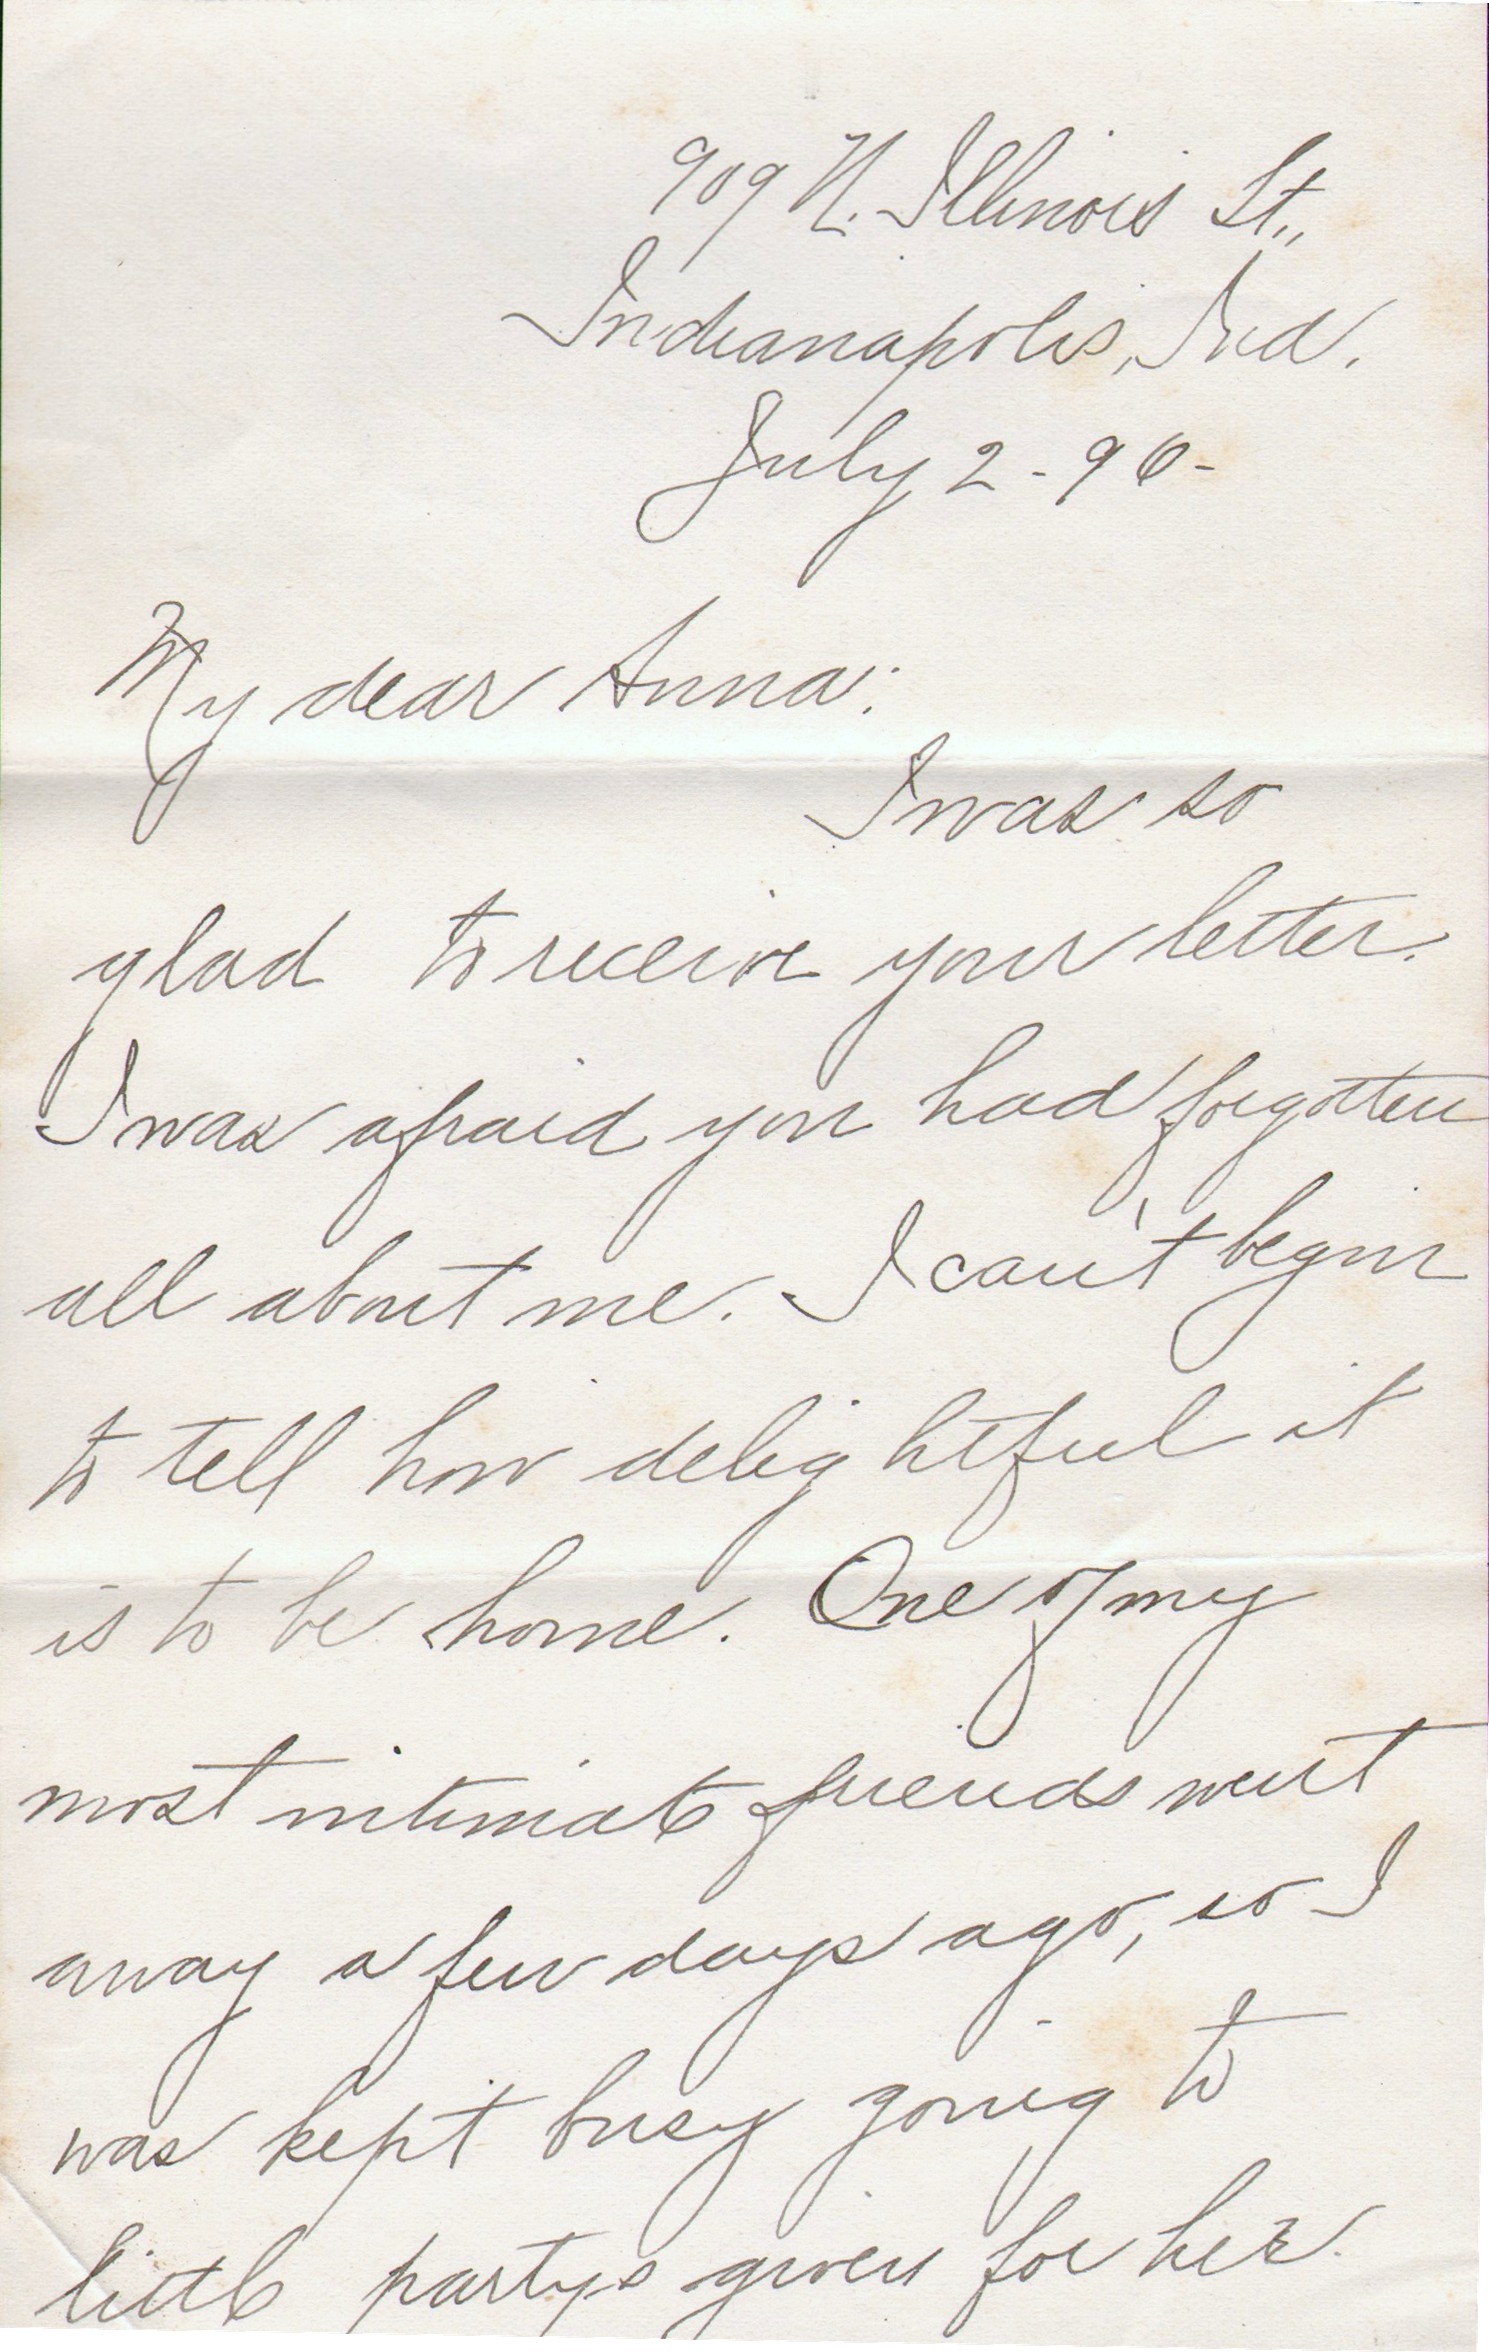 909 N. Illinois St.,
Indianapolis, Ind.
July 2 - 96 -
My dear Anna:
I was so
glad to receive your letter.
I was afraid you had forgotten
all about me. I can't begin
to tell how delightful it
is to be home. One of my
most intimate friends went
away a few days ago, so I
was kept busy going to
little partys given for her.